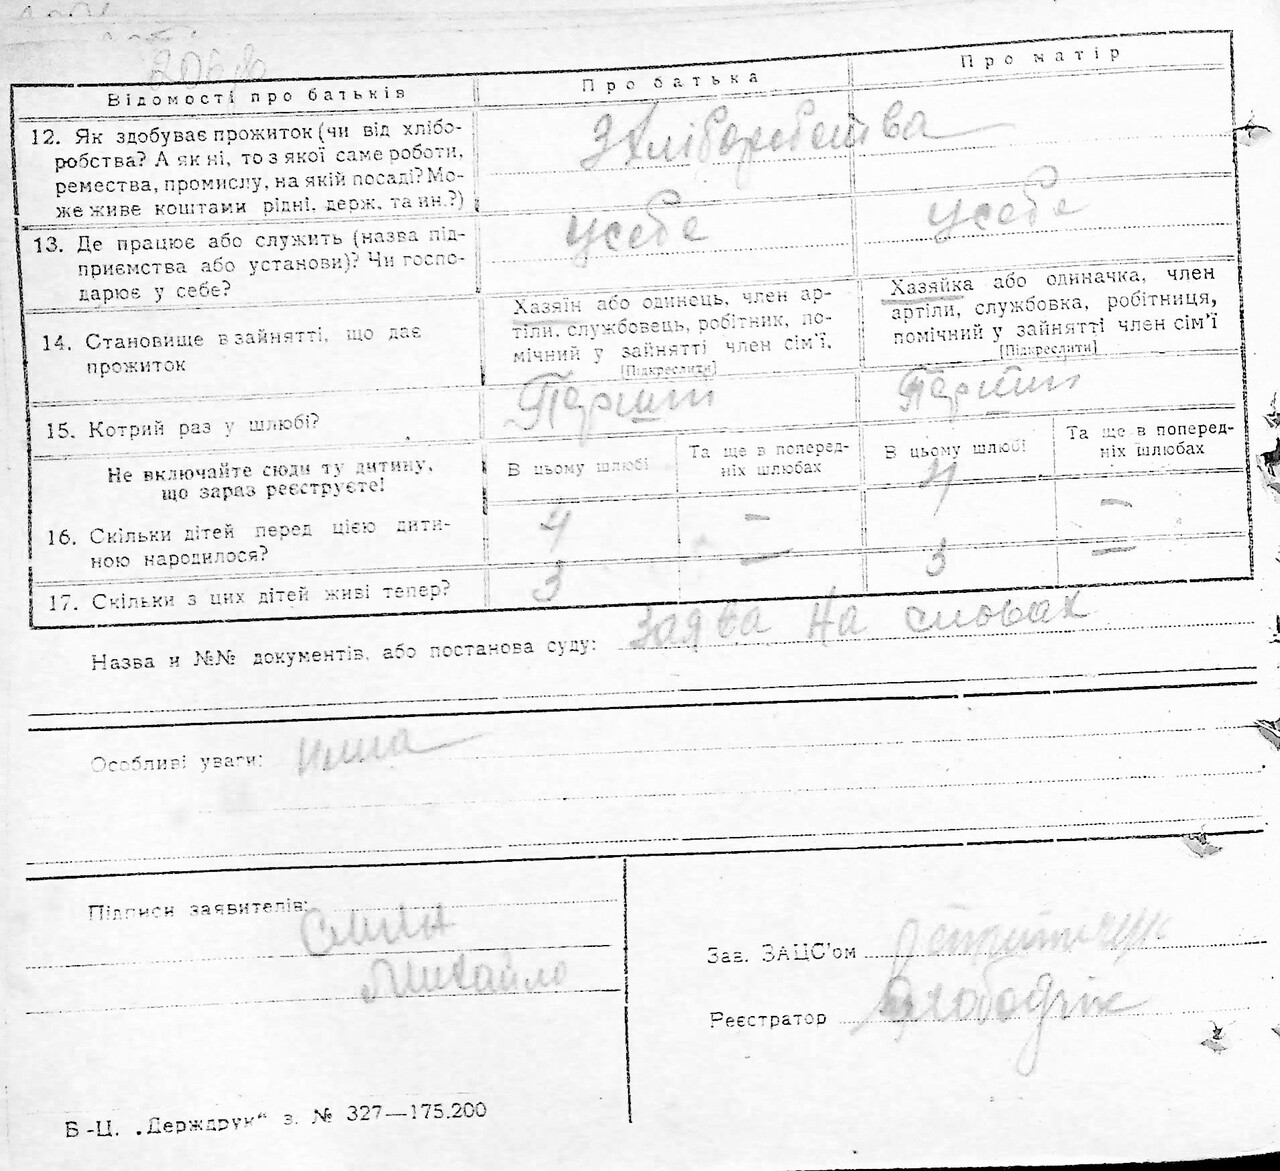 Відомості про батьків
Про батька
Про матір
12. Як здобуває прожиток (чи від хлібо-
робства? А як ні, то з якої саме роботи,
ремества, промислу, на якій посаді? Мо-
же живе коштами рідні, держ. та ин.?)
З хліборобства
13. Де працює або служить (назва під-
приємства або установи)? Чи госпо-
дарює у себе?
у себе
у себе
14. Становище в зайнятті, що дає
прожиток
Хазяїн або одинець, член ар-
тіли, службовець, робітник, по-
мічний у зайнятті член сім'ї.
[Підкреслити]
Хазяйка або одиначка, член
артіли, службовка, робітниця,
помічний у зайнятті член сім'ї
[Підкреслити]
15. Котрий раз у шлюбі?
Перший
Перший
Не включайте сюди ту дитину,
що зараз реєструєте!
В цьому шлюбі
Та ще в поперед-
ніх шлюбах
В цьому шлюбі
Та ще в поперед-
ніх шлюбах
16. Скільки дітей перед цією дити-
ною народилося?
4
–
4
–
17. Скільки з цих дітей живі тепер?
3
–
3
–
Назва и №№ документів, або постанова суду: Заява на словах
Особливі уваги:
Підписи заявителів:
Михайло
Зав. ЗАЦС'ом
Реєстратор
Б-Ц. „Держдрук“ з. № 327—175.200